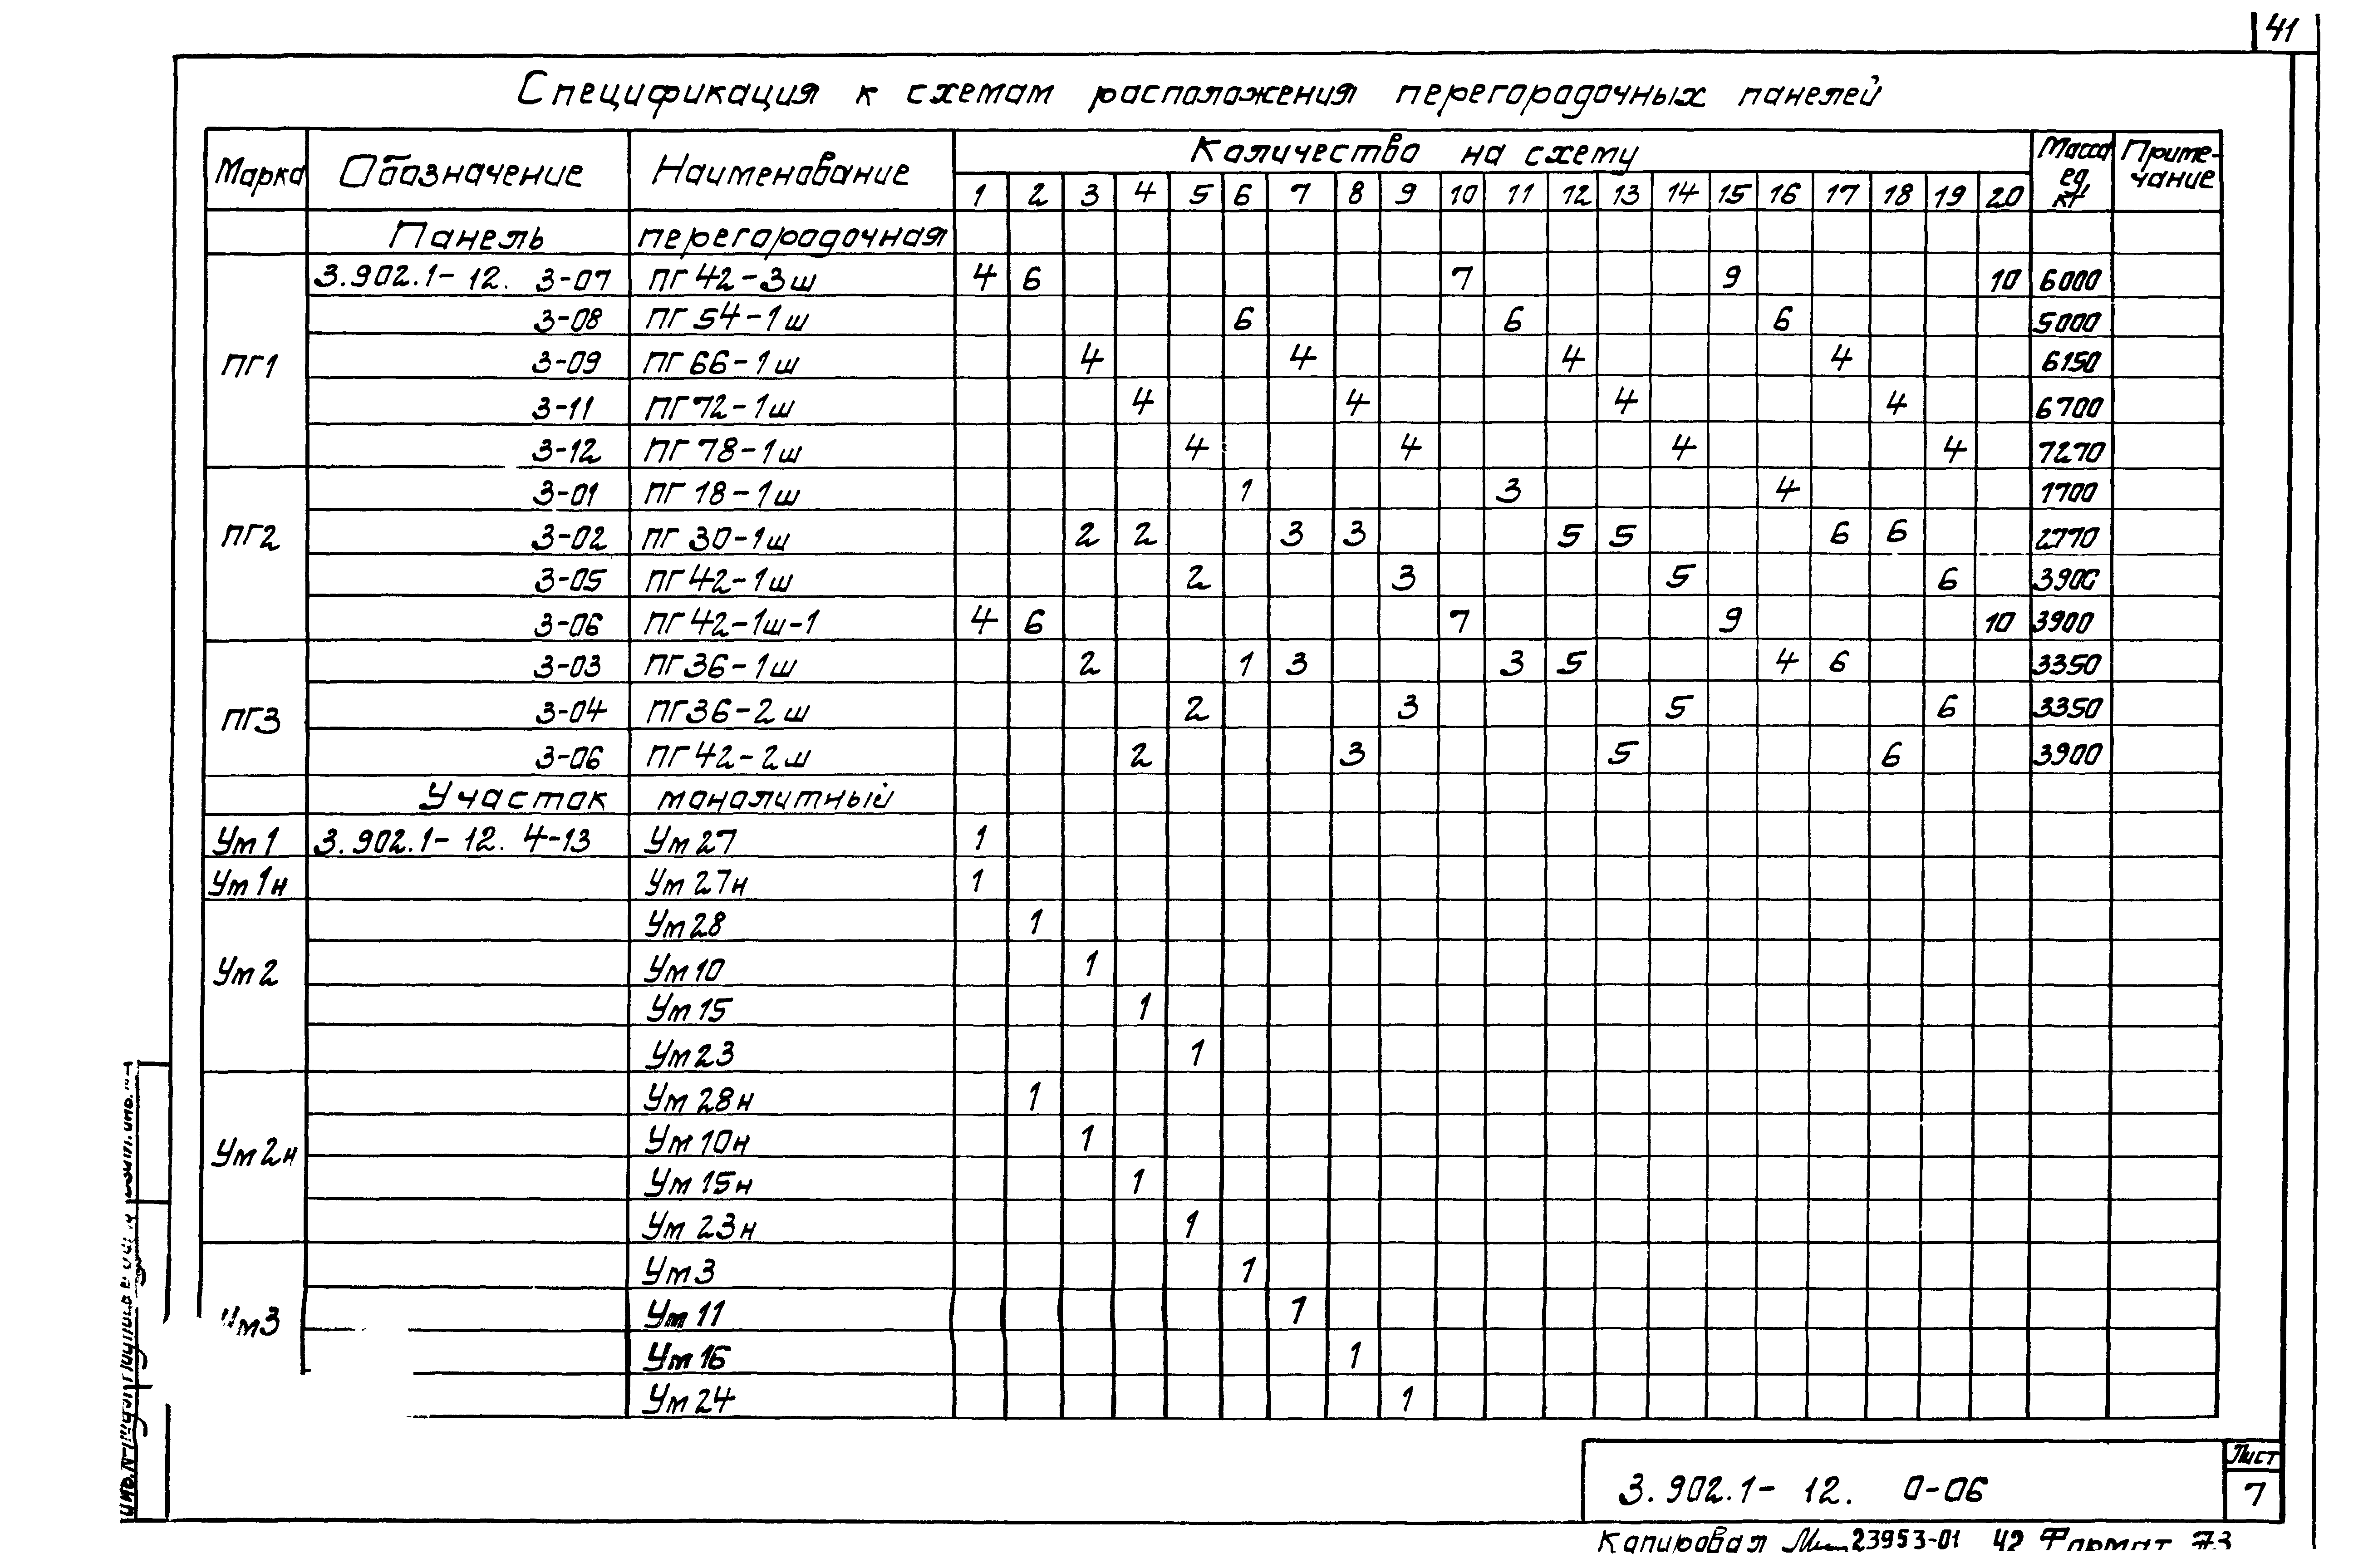 41
Спецификация к схемам расположения перегородочных панелей
Марка Обозначение Наименование Количество на схему Масса ед, кг Приме-чание
1 2 3 4 5 6 7 8 9 10 11 12 13 14 15 16 17 18 19 20
Панель перегородочная
3.902.1-12. 3-07 ПГ42-3ш 4 6 7 9 10 6000
3-08 ПГ54-1ш 6 6 6 5000
ПГ1 3-09 ПГ66-1ш 4 4 4 4 6150
3-11 ПГ72-1ш 4 4 4 4 6700
3-12 ПГ78-1ш 4 4 4 4 7270
3-01 ПГ18-1ш 1 3 4 1700
ПГ2 3-02 ПГ30-1ш 2 2 3 3 5 5 6 6 2770
3-05 ПГ42-1ш 2 3 5 6 3900
3-06 ПГ42-1ш-1 4 6 7 9 10 3900
3-03 ПГ36-1ш 2 1 3 3 5 4 6 3350
ПГ3 3-04 ПГ36-2ш 2 3 5 6 3350
3-06 ПГ42-2ш 2 3 5 6 3900
Участок монолитный
Ум1 3.902.1-12. 4-13 Ум27 1
Ум1н Ум27н 1
Ум28 1
Ум2 Ум10 1
Ум15 1
Ум23 1
Ум28н 1
Ум2н Ум10н 1
Ум15н 1
Ум23н 1
Ум3 1
Ум3 Ум11 1
Ум16 1
Ум24 1
3.902.1-12. 0-06
Лист
7
Копировал 23953-01 42 Формат А3